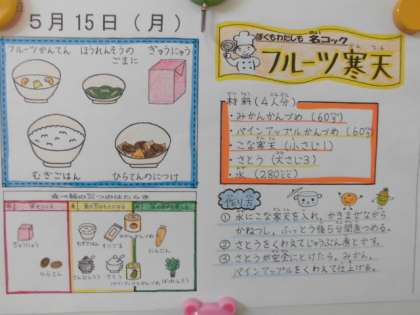 5月15日（月）
フルーツかんてん
ほうれんそうの
ごまに
ぎゅうにゅう
むぎごはん
ひらてんのにつけ
食べ物の三つのはたらき
ぎゅうにゅう
むぎごはん
にんじん
さとう
ほうれんそう
ぼくもわたしも 名コック
フルーツ寒天
材料（4人分）
・みかんかんづめ（60g）
・パインアップルかんづめ（60g）
・こな寒天（小さじ1）
・さとう（大さじ3）
・水（280cc）
作り方
①水にこな寒天を入れ、かきまぜながら
かねっし、ふっとう後5分間煮つめる。
②さとうをくわえてじゅうぶん煮とかす。
③さとうが完全にとけたら、みかん、
パインアップルをくわえて仕上げる。